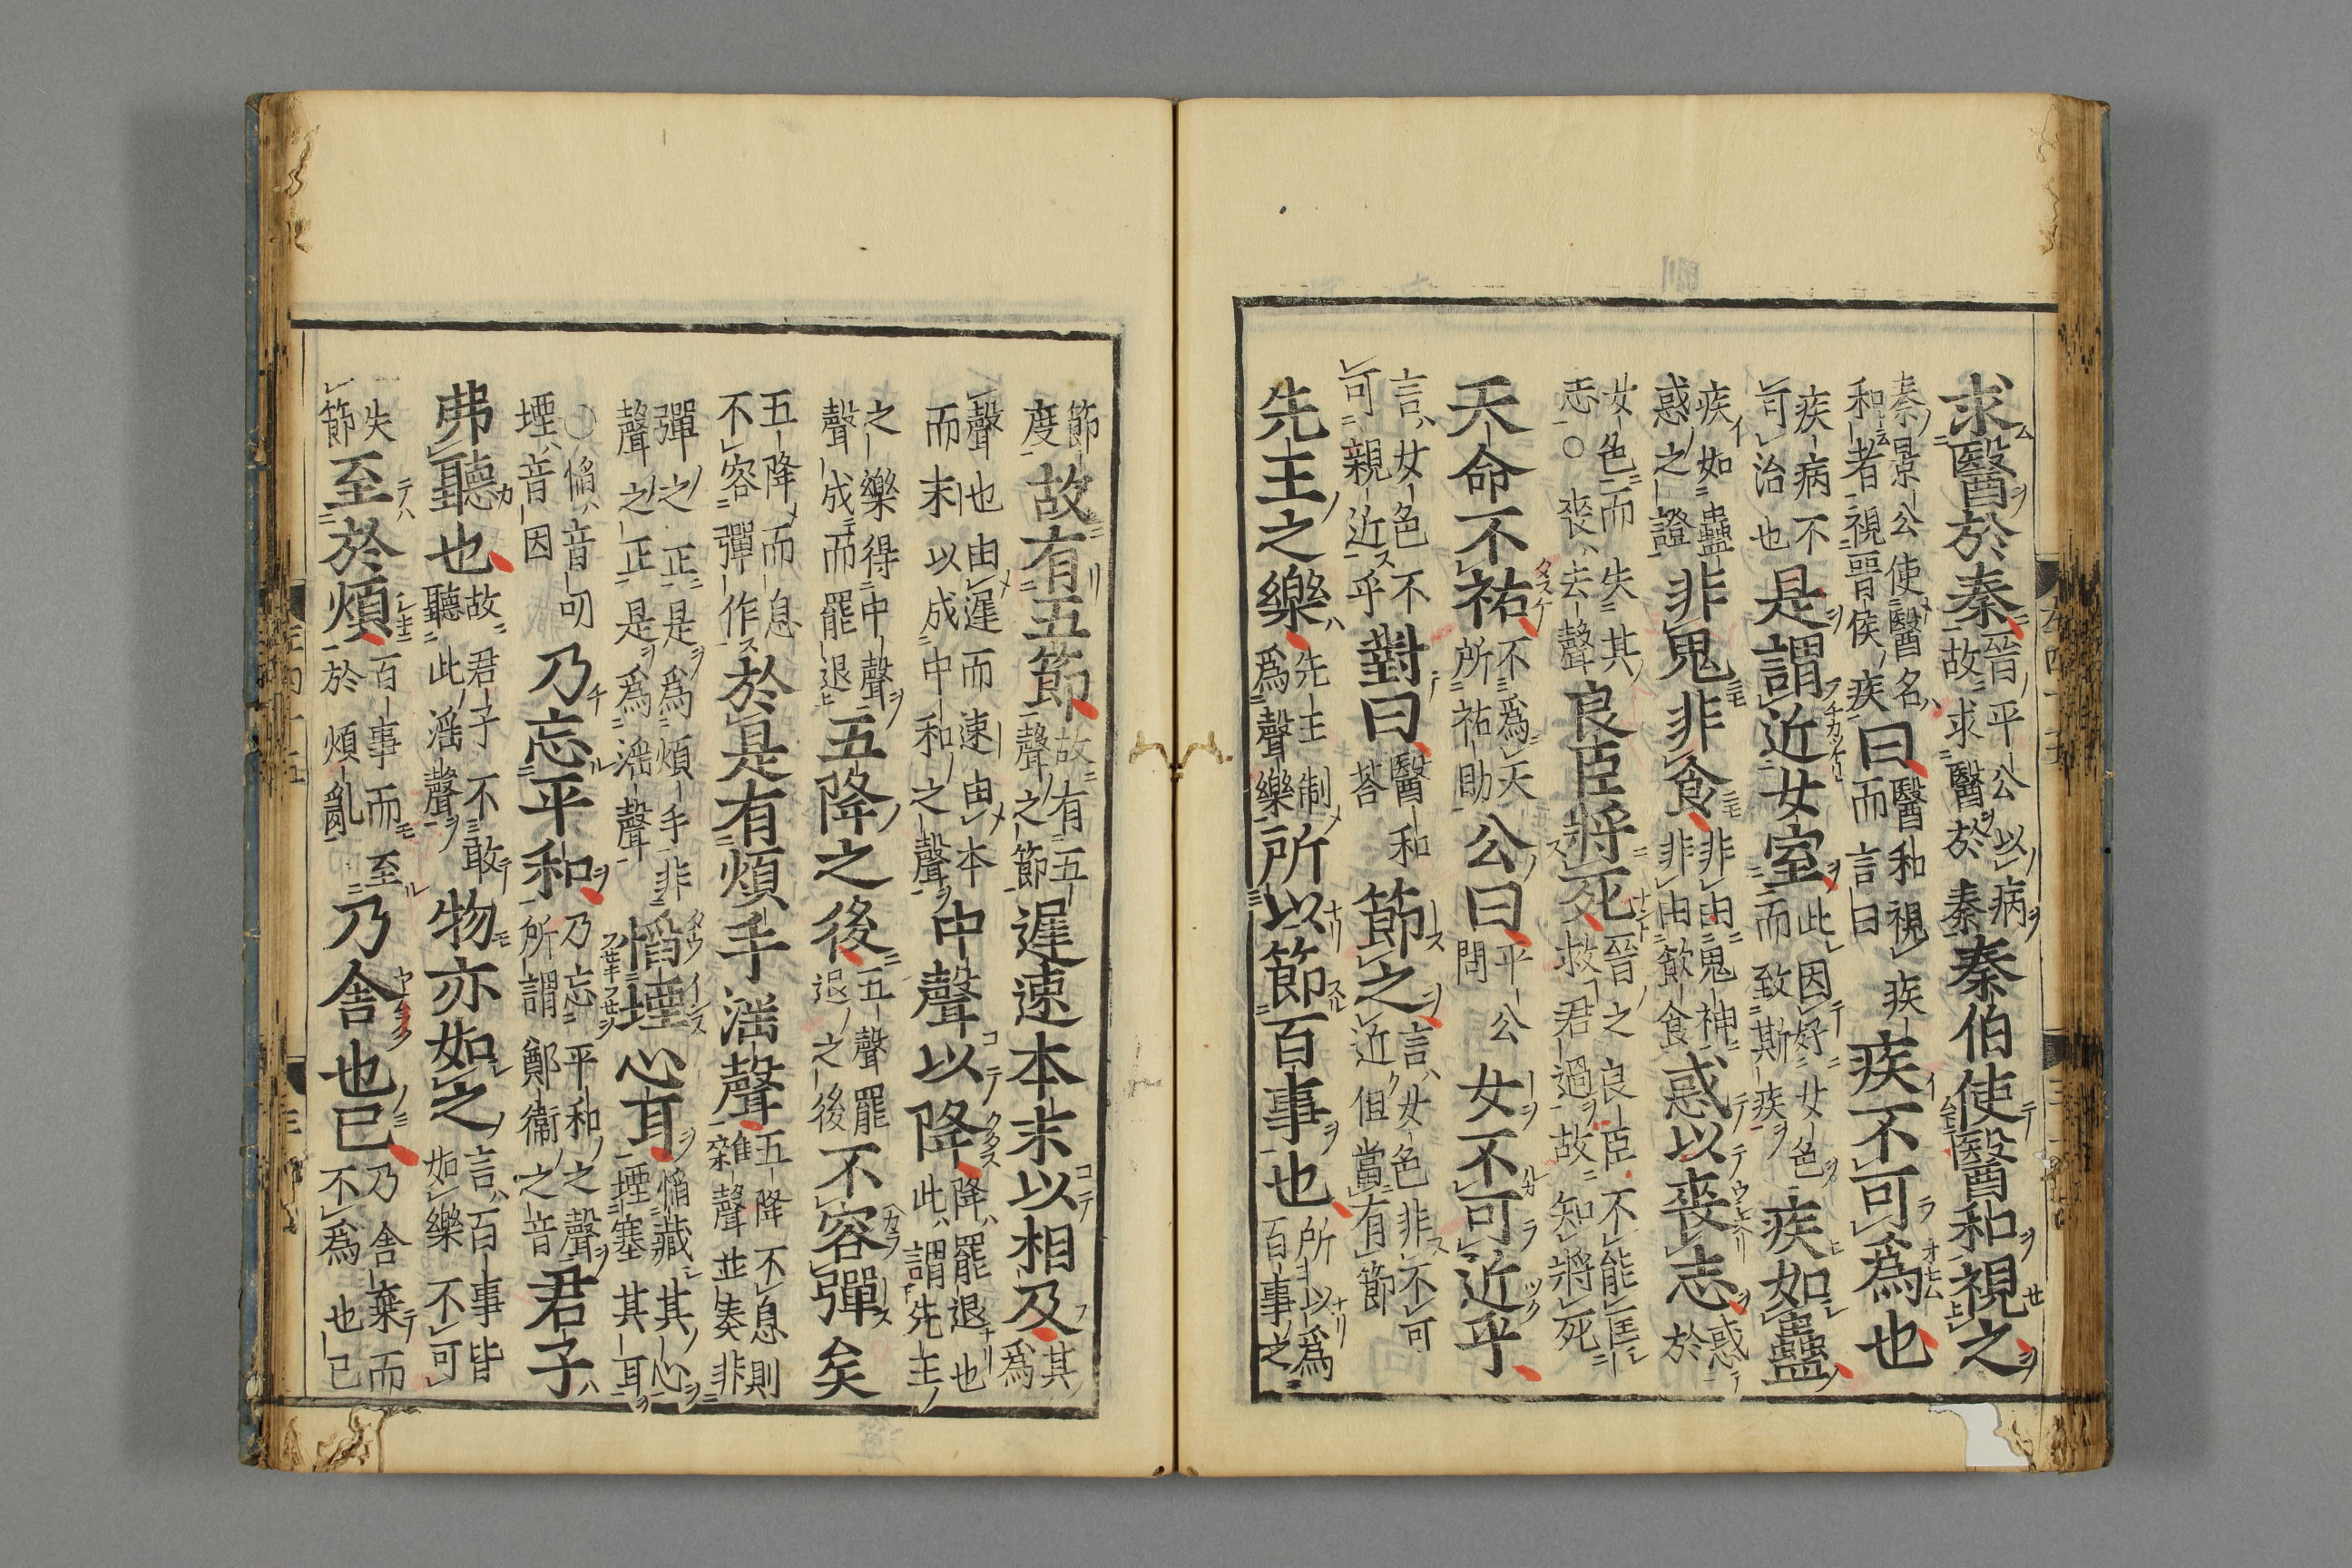 求醫於秦晉平公以病故求醫於秦秦伯使醫和視之
秦景公使醫名和者視晉侯疾曰醫和視疾而言曰疾不可爲也
疾病不可治也是謂近女室此因好女色而致斯疾疾如蠱
疾如蠱惑之證非鬼非食非由鬼神非由飲食惑以喪志惑於
女色而失其志○喪去聲良臣將死晉之良臣不能匡救君過故知將死
天命不祐不爲天所祐助公曰平公問女不可近乎
言女色不可親近乎對曰醫和荅節之言女色非不可近但當有節
先王之樂先王制爲聲樂所以節百事也所以爲百事之
節度故有五節故有五聲之節遲速本末以相及其爲
聲也由遲而速由本而末以成中和之聲中聲以降降罷退也此謂先王
之樂得中聲聲成而罷退五降之後五聲罷退之後不容彈矣
五降而息不容彈作於是有煩手淫聲五降不息則雜聲並奏非
彈之正是爲煩手非聲之正是爲淫聲慆堙心耳慆藏其心堙塞其耳
○慆音叨堙音因乃忘平和乃忘平和之聲所謂鄭衞之音君子
弗聽也故君子不敢聽此淫聲物亦如之言百事皆如樂不可
失節至於煩百事而至於煩亂乃舍也已乃舍棄而不爲也已